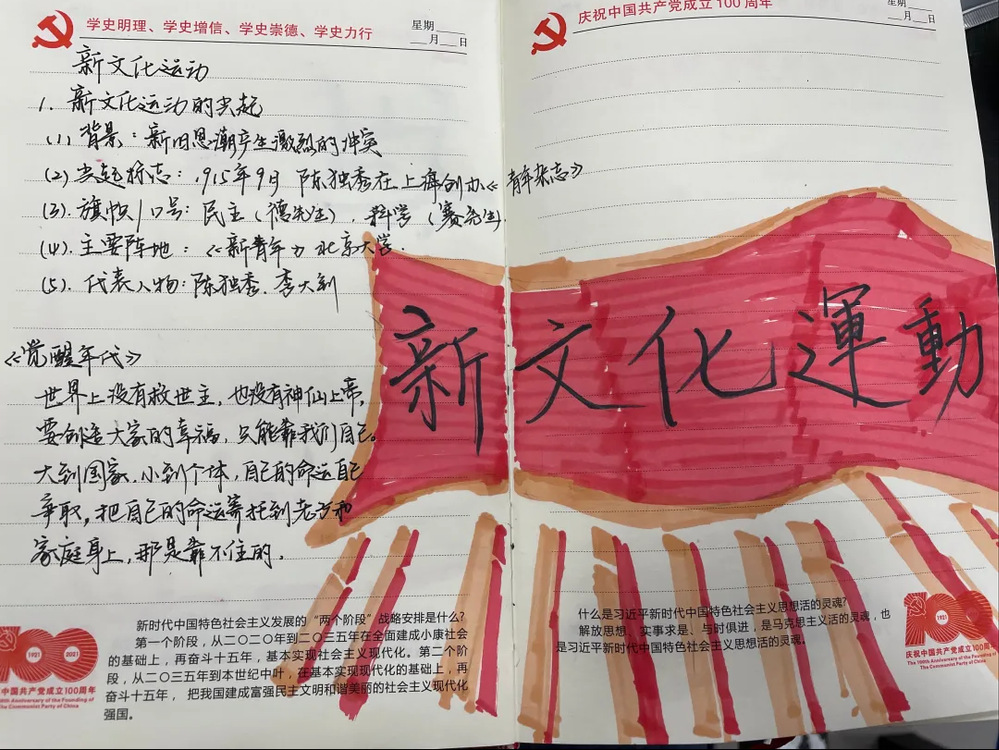 学史明理、学史增信、学史崇德、学史力行
星期
月 日
新文化运动
1. 新文化运动的兴起
(1) 背景：新旧思潮产生激烈的冲突
(2) 兴起标志：1915年9月 陈独秀在上海创办《青年杂志》
(3). 旗帜/口号：民主（德先生）, 科学（赛先生）
(4). 主要阵地：《新青年》北京大学.
(5). 代表人物：陈独秀. 李大钊
《觉醒年代》
世界上没有救世主, 也没有神仙上帝,
要创造大家的幸福, 只能靠我们自己。
大到国家, 小到个体, 自己的命运自己
争取, 把自己的命运寄托到老方和
家庭身上, 那是靠不住的.
新时代中国特色社会主义发展的“两个阶段”战略安排是什么？
第一个阶段，从二〇二〇年到二〇三五年在全面建成小康社会
的基础上，再奋斗十五年，基本实现社会主义现代化。第二个阶
段，从二〇三五年到本世纪中叶，在基本实现现代化的基础上，再
奋斗十五年， 把我国建成富强民主文明和谐美丽的社会主义现代化
强国。
100
1921 2021
中国共产党成立100周年
The 100th Anniversary of the Founding of
The Communist Party of China
庆祝中国共产党成立100周年
星期
月 日
新文化運動
什么是习近平新时代中国特色社会主义思想活的灵魂？
解放思想、实事求是、与时俱进，是马克思主义活的灵魂，也
是习近平新时代中国特色社会主义思想活的灵魂。
100
1921
庆祝中国共产党成立100周年
The 100th Anniversary of the Founding of
The Communist Party of China